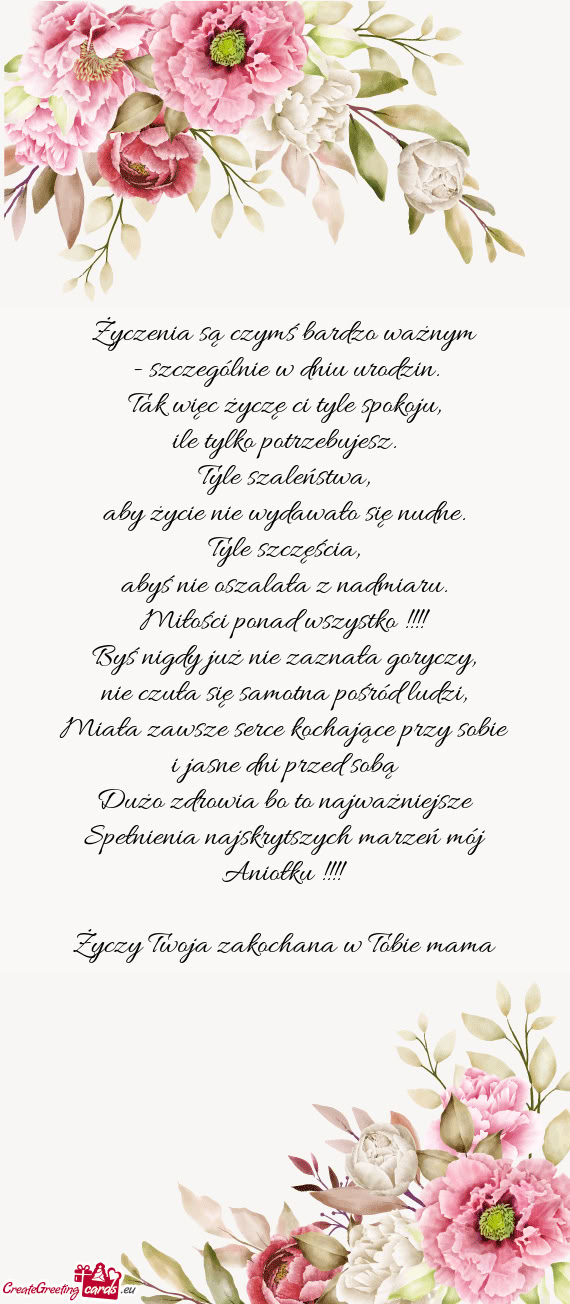 Życzenia są czymś bardzo ważnym
- szczególnie w dniu urodzin.
Tak więc życzę ci tyle spokoju,
ile tylko potrzebujesz.
Tyle szaleństwa,
aby życie nie wydawało się nudne.
Tyle szczęścia,
abyś nie oszalała z nadmiaru.
Miłości ponad wszystko !!!!
Byś nigdy już nie zaznała goryczy,
nie czuła się samotna pośród ludzi,
Miała zawsze serce kochające przy sobie
i jasne dni przed sobą
Dużo zdrowia bo to najważniejsze
Spełnienia najskrytszych marzeń mój
Aniołku !!!!
Życzy Twoja zakochana w Tobie mama
CreateGreeting cards .eu